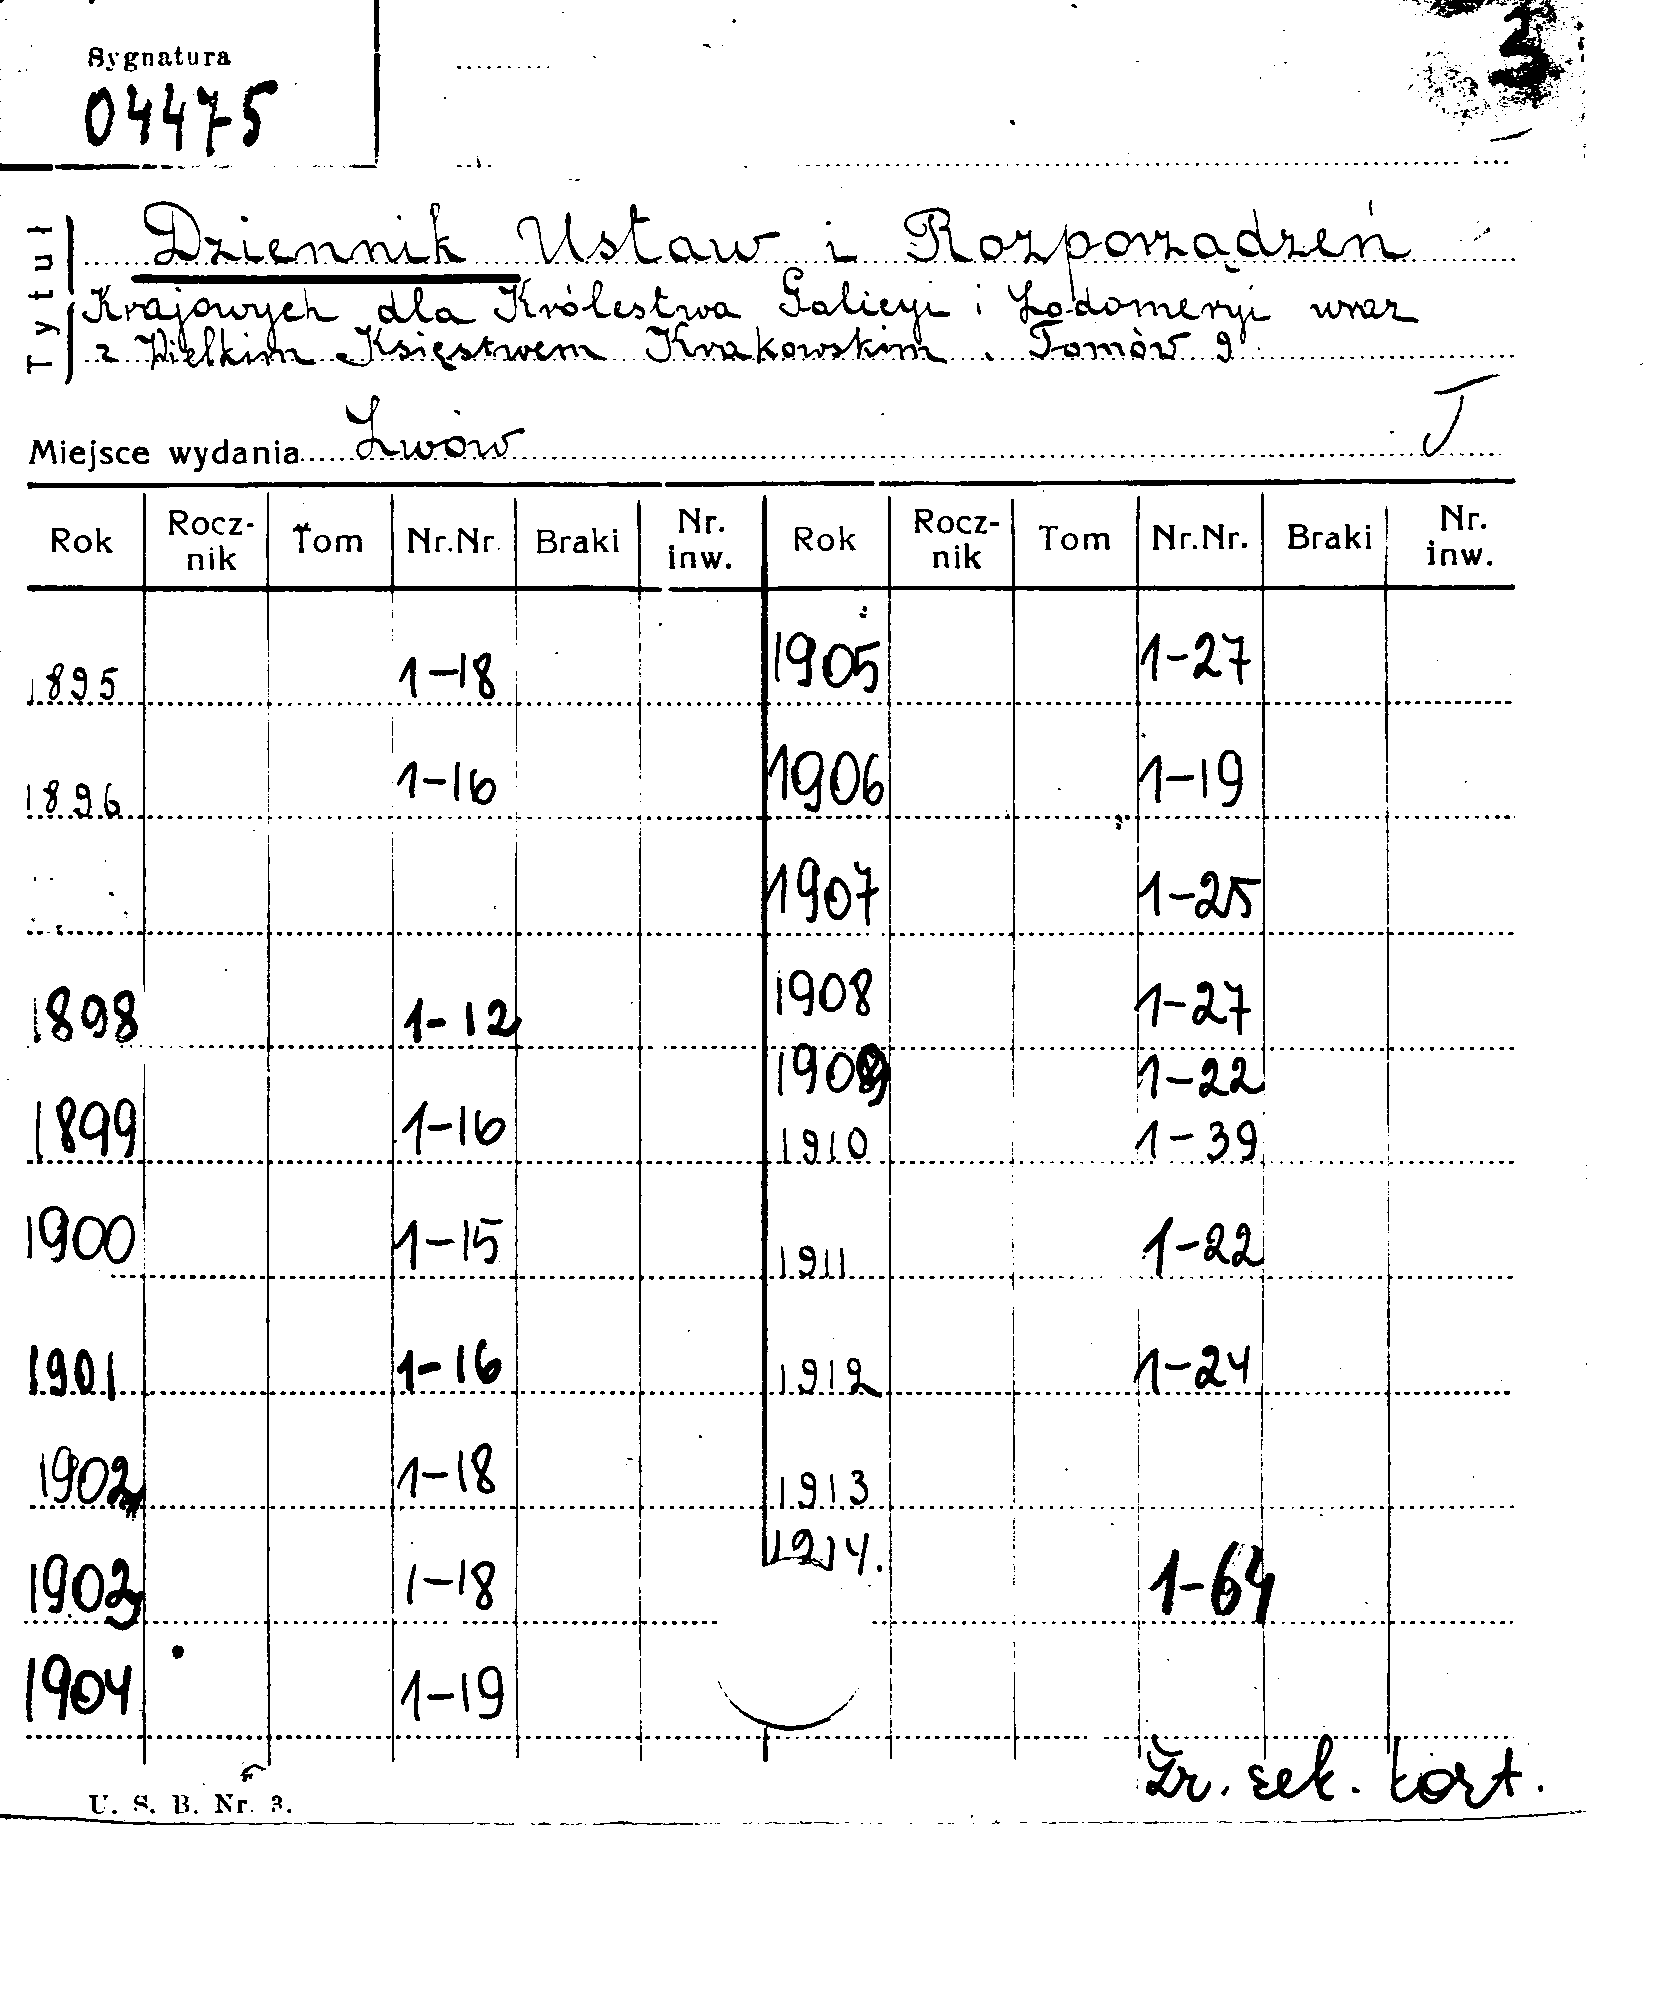 3
Sygnatura
04475
Tytuł
Dziennik Ustaw i Rozporządzeń
Krajowych dla Królestwa Galicyi i Lodomeryi wraz
z Wielkim Księstwem Krakowskim. Tomów 9
Miejsce wydania Lwów J
Rok Rocz-nik Tom Nr.Nr. Braki Nr. inw. Rok Rocz-nik Tom Nr.Nr. Braki Nr. inw.
1895 1-18 1905 1-27
1896 1-16 1906 1-19
1907 1-25
1898 1-12 1908 1-27
1909 1-22
1899 1-16 1910 1-39
1900 1-15 1911 1-22
1901 1-16 1912 1-24
1902 1-18 1913
1903 1-18 1914. 1-64
1904 1-19
U. S. B. Nr. 3.